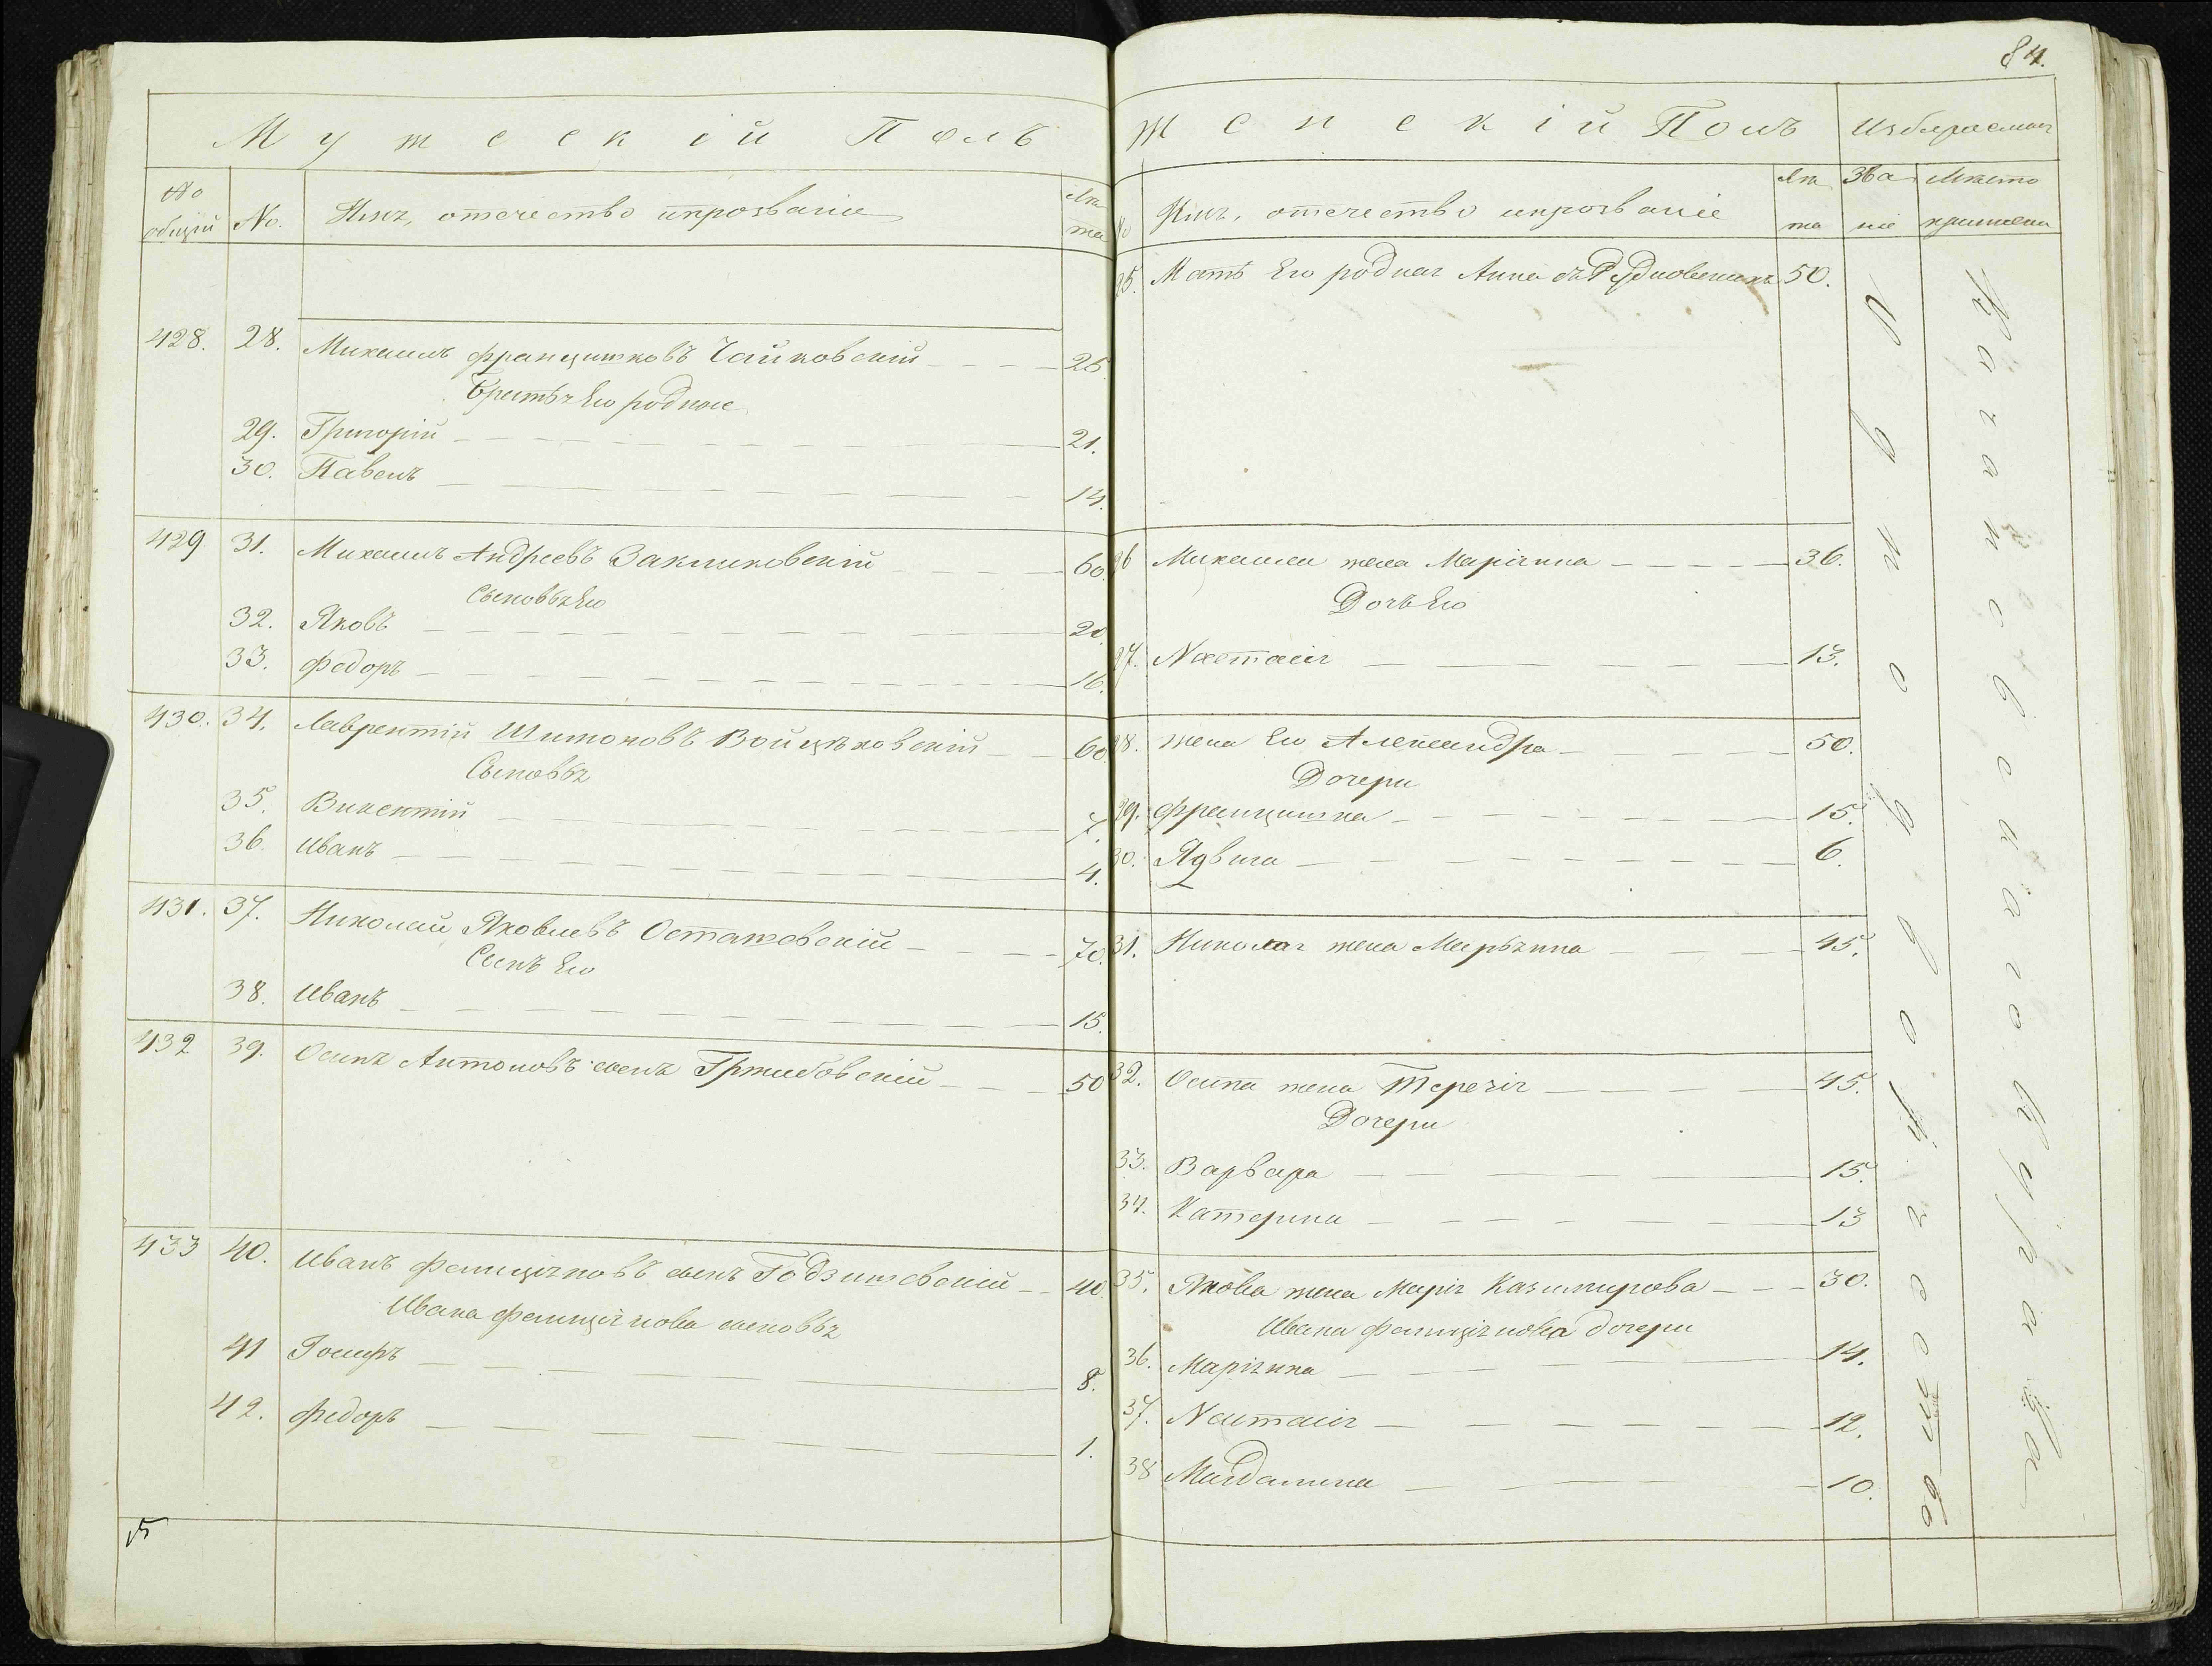 84.
Мужескій Полъ
№ общій
№.
Имя, отечество ипрозваніе
Лѣта
428. 28. Михаилъ францишковъ Чайковскій 25
Братья Его родные
29. Григорій 21.
30. Павелъ 14.
429 31. Михаилъ Андреевъ Закликовскій 60.
Сыновья Его
32. Яковъ 20
33. федоръ 16.
430. 34. Лаврентій Шимоновъ Войцѣховскій 60
Сыновья
35. Викентій 7.
36. Иванъ 4.
431. 37. Николай Яковлевъ Осташевскій 70.
Сынъ Его
38. Иванъ 15.
432 39. Осипъ Антоновъ сынъ Гржибовскій 50
433 40. Иванъ фелиціяновъ сынъ Годзишевскій 40.
Ивана фелиціянова сыновья
41 Іосифъ 8.
42. федоръ 1.
Женскій Полъ
№
Имя, отечество ипрозваніе
Лѣта
Избираемая
Званіе
Мѣсто
25. Мать Его родная Анна 50.
26 Михаила жена Маріянна 36.
Дочь Его
27. Настасія 13.
28. жена Его Александра 50.
Дочери
29. францишка 15.
30. Ядвига 6.
31. Николая жена Марьянна 45.
32. Осипа жена Терезія 45.
Дочери
33. Варвара 15.
34. Катерина 13
35. Якова жена Марія Казимирова 30.
Ивана фелиціянова дочери
36. Маріянна 14.
37. Настасія 12.
38 Магдалина 10.